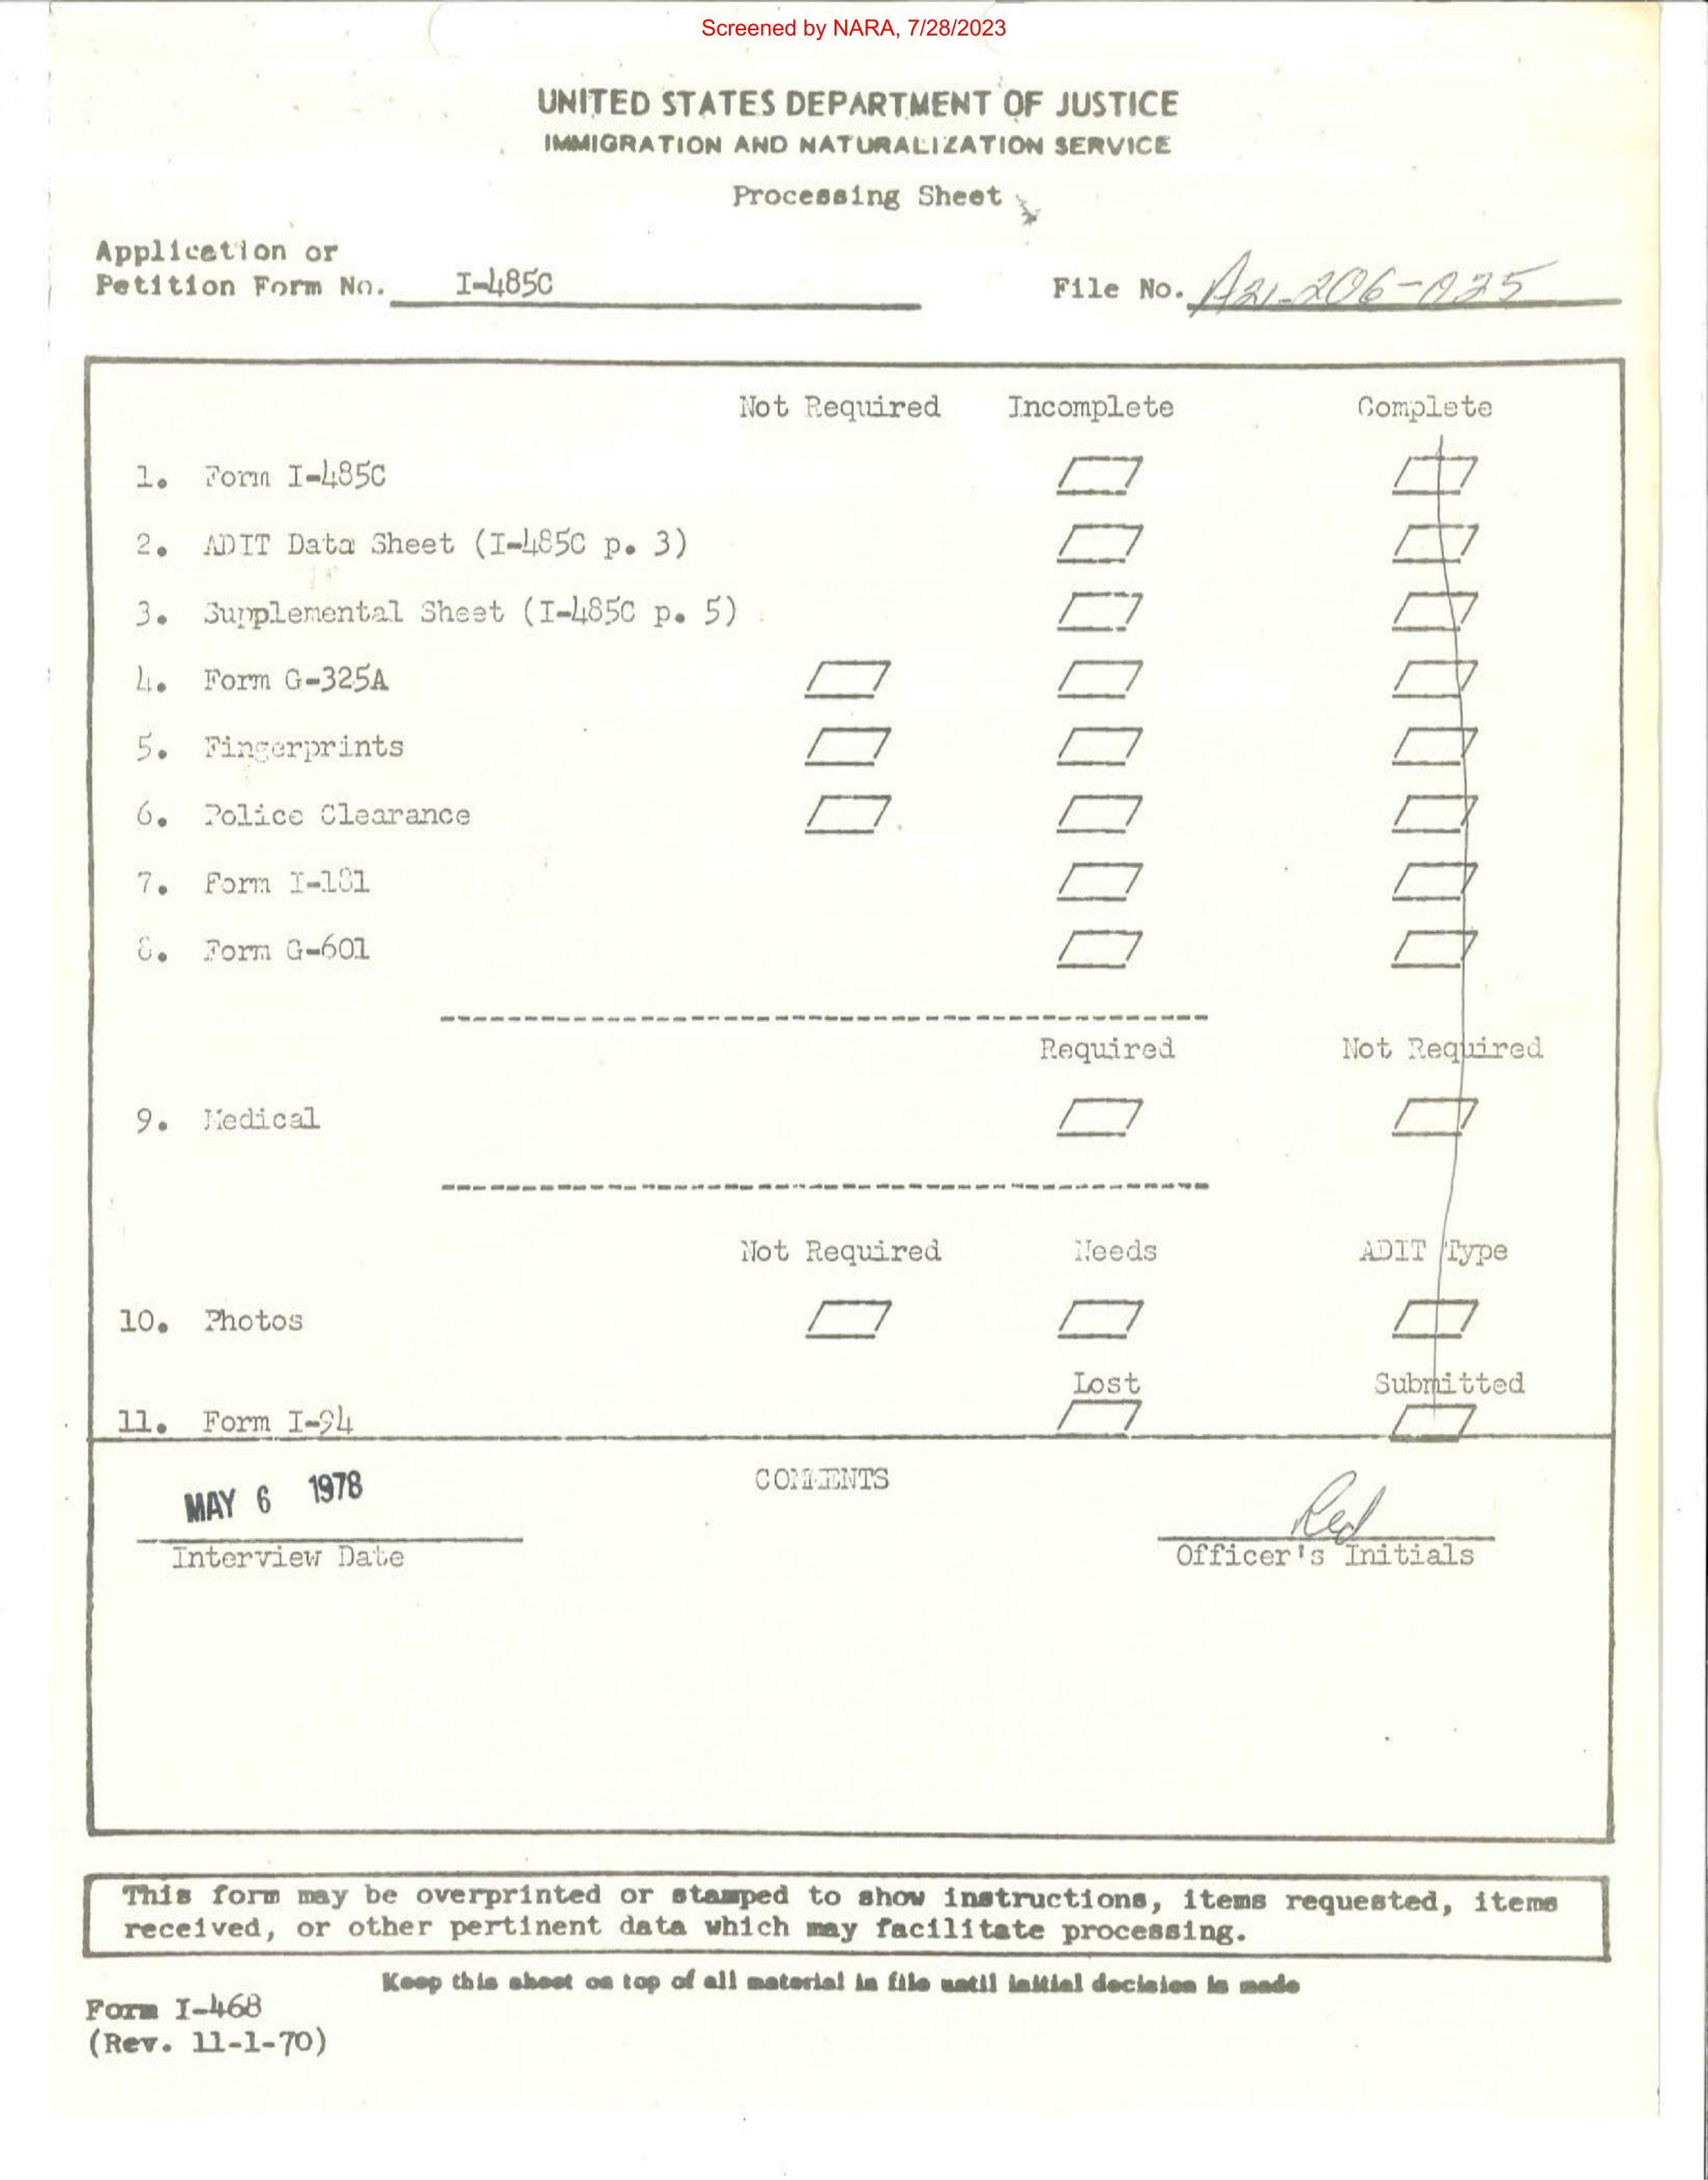 Screened by NARA, 7/28/2023
UNITED STATES DEPARTMENT OF JUSTICE
IMMIGRATION AND NATURALIZATION SERVICE
Processing Sheet
Application or
Petition Form No. I-485C File No. A21-206-025
Not Required Incomplete Complete
1. Form I-485C
2. ADIT Data Sheet (I-485C p. 3)
3. Supplemental Sheet (I-485C p. 5)
4. Form G-325A
5. Fingerprints
6. Police Clearance
7. Form I-181
8. Form G-601
Required Not Required
9. Medical
Not Required Needs ADIT Type
10. Photos
Lost Submitted
11. Form I-94
MAY 6 1978 COMMENTS
Interview Date Officer's Initials
This form may be overprinted or stamped to show instructions, items requested, items
received, or other pertinent data which may facilitate processing.
Keep this sheet on top of all material in file until initial decision is made
Form I-468
(Rev. 11-1-70)